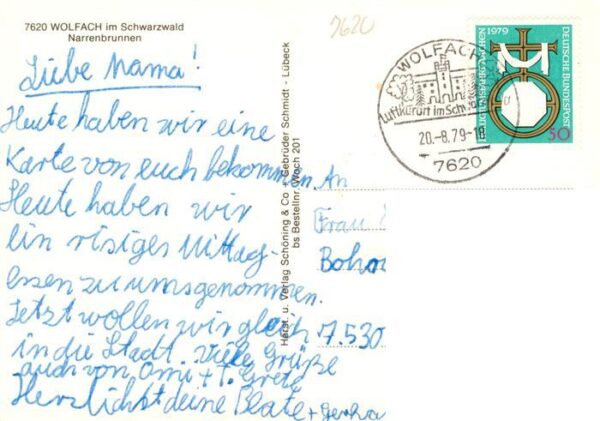 7620 WOLFACH im Schwarzwald
Narrenbrunnen
7620
Liebe Mama!
Heute haben wir eine
Karte von euch bekommen.
Heute haben wir
ein risiges Mittag-
essen zu ums genommen.
Jetzt wollen wir gleich
in die Stadt. Viele Grüße
auch von Omi + T. Grete
Herzlichst deine Beate + Gerha
Herst. u. Verlag Schöning & Co + Gebrüder Schmidt - Lübeck
bs Bestellnr. Woch 201
WOLFACH
Luftkurort im Sch
20.-8.79-18
7620
1979
DEUTSCHE BUNDESPOST
50
An
Frau
Bohor
7530